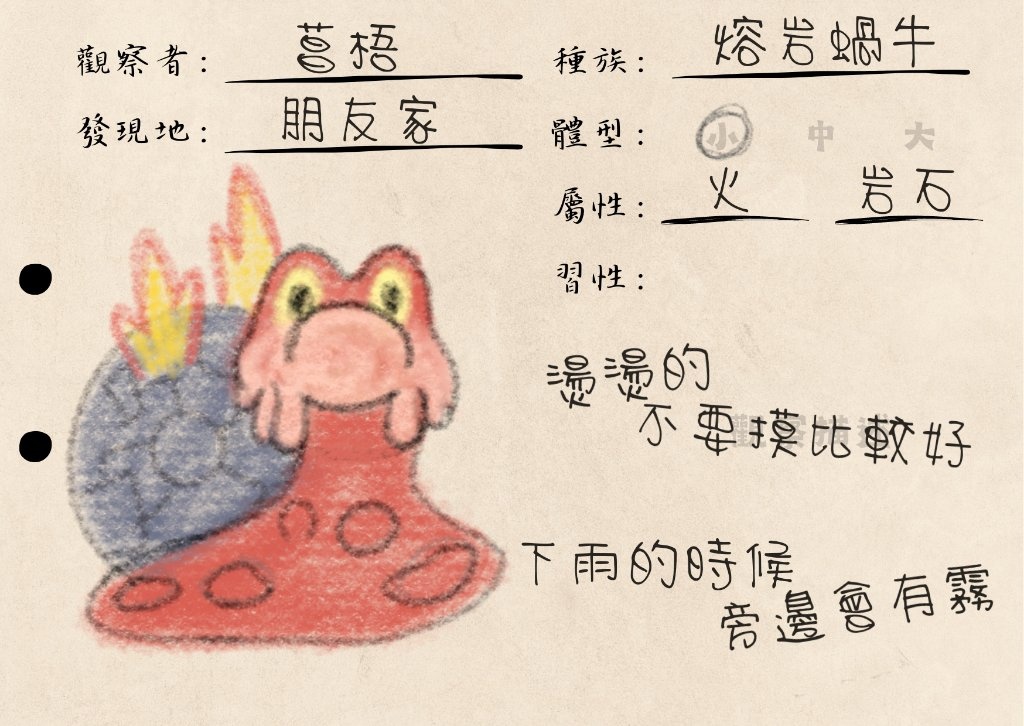 觀察者： 菖梧
種族： 熔岩蝸牛
發現地： 朋友家
體型： 小 中 大
屬性： 火 岩石
習性：
燙燙的
不要摸比較好
下雨的時候
旁邊會有霧